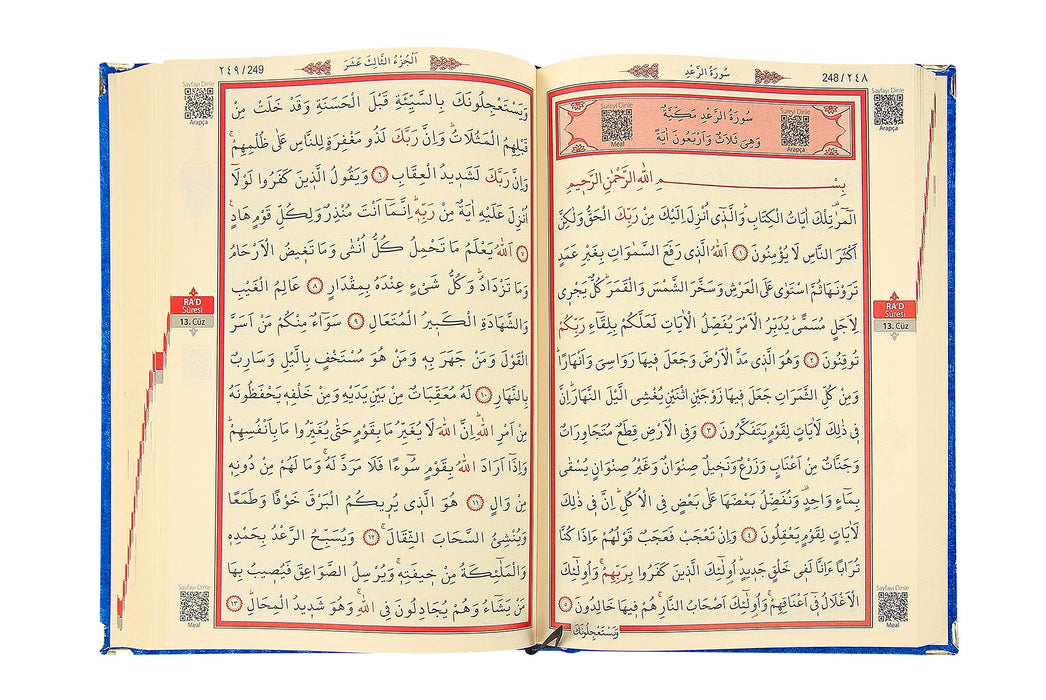 248/٢٤٨
سُورَةُ الرَّعْدِ
Sayfayı Dinle
Arapça
Sureyi Dinle
Meal
Sureyi Dinle
Arapça
سُورَةُ الرَّعْدِ مَكِّيَّةٌ
وَهِيَ ثَلَاثٌ وَاَرْبَعُونَ اٰيَةً
بِسْمِ اللّٰهِ الرَّحْمٰنِ الرَّحٖيمِ
الٓمٓرٰ تِلْكَ اٰيَاتُ الْكِتَابِؕ وَالَّذٖٓي اُنْزِلَ اِلَيْكَ مِنْ رَبِّكَ الْحَقُّ وَلٰكِنَّ
اَكْثَرَ النَّاسِ لَا يُؤْمِنُونَ ١ اَللّٰهُ الَّذٖي رَفَعَ السَّمٰوَاتِ بِغَيْرِ عَمَدٍ
تَرَوْنَهَا ثُمَّ اسْتَوٰى عَلَى الْعَرْشِ وَسَخَّرَ الشَّمْسَ وَالْقَمَرَؕ كُلٌّ يَجْرٖي
لِاَجَلٍ مُسَمًّىؕ يُدَبِّرُ الْاَمْرَ يُفَصِّلُ الْاٰيَاتِ لَعَلَّكُمْ بِلِقَٓاءِ رَبِّكُمْ
تُوقِنُونَ ٢ وَهُوَ الَّذٖي مَدَّ الْاَرْضَ وَجَعَلَ فٖيهَا رَوَاسِيَ وَاَنْهَارًاؕ
وَمِنْ كُلِّ الثَّمَرَاتِ جَعَلَ فٖيهَا زَوْجَيْنِ اثْنَيْنِ يُغْشِي الَّيْلَ النَّهَارَؕ اِنَّ
فٖي ذٰلِكَ لَاٰيَاتٍ لِقَوْمٍ يَتَفَكَّرُونَ ٣ وَفِي الْاَرْضِ قِطَعٌ مُتَجَاوِرَاتٌ
وَجَنَّاتٌ مِنْ اَعْنَابٍ وَزَرْعٌ وَنَخٖيلٌ صِنْوَانٌ وَغَيْرُ صِنْوَانٍ يُسْقٰى
بِمَٓاءٍ وَاحِدٍ وَنُفَضِّلُ بَعْضَهَا عَلٰى بَعْضٍ فِي الْاُكُلِؕ اِنَّ فٖي ذٰلِكَ
لَاٰيَاتٍ لِقَوْمٍ يَعْقِلُونَ ٤ وَاِنْ تَعْجَبْ فَعَجَبٌ قَوْلُهُمْ ءَاِذَا كُنَّا
تُرَابًا ءَاِنَّا لَفٖي خَلْقٍ جَدٖيدٍؕ اُو۬لٰٓئِكَ الَّذٖينَ كَفَرُوا بِرَبِّهِمْۚ وَاُو۬لٰٓئِكَ
الْاَغْلَالُ فٖٓي اَعْنَاقِهِمْۚ وَاُو۬لٰٓئِكَ اَصْحَابُ النَّارِۚ هُمْ فٖيهَا خَالِدُونَ ٥
وَيَسْتَعْجِلُونَكَ
RA'D
Sûresi
13. Cüz
Sayfayı Dinle
Meal
اَلْجُزْءُ الثَّالِثَ عَشَرَ
٢٤٩/249
Sayfayı Dinle
Arapça
وَيَسْتَعْجِلُونَكَ بِالسَّيِّئَةِ قَبْلَ الْحَسَنَةِ وَقَدْ خَلَتْ مِنْ
قَبْلِهِمُ الْمَثُلَاتُؕ وَاِنَّ رَبَّكَ لَذُو مَغْفِرَةٍ لِلنَّاسِ عَلٰى ظُلْمِهِمْۚ
وَاِنَّ رَبَّكَ لَشَدٖيدُ الْعِقَابِ ٦ وَيَقُولُ الَّذٖينَ كَفَرُوا لَوْلَٓا
اُنْزِلَ عَلَيْهِ اٰيَةٌ مِنْ رَبِّهٖؕ اِنَّمَٓا اَنْتَ مُنْذِرٌ وَلِكُلِّ قَوْمٍ هَادٍ
٧ اَللّٰهُ يَعْلَمُ مَا تَحْمِلُ كُلُّ اُنْثٰى وَمَا تَغٖيضُ الْاَرْحَامُ
وَمَا تَزْدَادُؕ وَكُلُّ شَيْءٍ عِنْدَهُ بِمِقْدَارٍ ٨ عَالِمُ الْغَيْبِ
وَالشَّهَادَةِ الْكَبٖيرُ الْمُتَعَالِ ٩ سَوَٓاءٌ مِنْكُمْ مَنْ اَسَرَّ
الْقَوْلَ وَمَنْ جَهَرَ بِهٖ وَمَنْ هُوَ مُسْتَخْفٍ بِالَّيْلِ وَسَارِبٌ
بِالنَّهَارِ ١٠ لَهُ مُعَقِّبَاتٌ مِنْ بَيْنِ يَدَيْهِ وَمِنْ خَلْفِهٖ يَحْفَظُونَهُ
مِنْ اَمْرِ اللّٰهِؕ اِنَّ اللّٰهَ لَا يُغَيِّرُ مَا بِقَوْمٍ حَتّٰى يُغَيِّرُوا مَا بِاَنْفُسِهِمْؕ
وَاِذَٓا اَرَادَ اللّٰهُ بِقَوْمٍ سُٓوءًا فَلَا مَرَدَّ لَهُۚ وَمَا لَهُمْ مِنْ دُونِهٖ
مِنْ وَالٍ ١١ هُوَ الَّذٖي يُرٖيكُمُ الْبَرْقَ خَوْفًا وَطَمَعًا
وَيُنْشِئُ السَّحَابَ الثِّقَالَۚ ١٢ وَيُسَبِّحُ الرَّعْدُ بِحَمْدِهٖ
وَالْمَلٰٓئِكَةُ مِنْ خٖيفَتِهٖۚ وَيُرْسِلُ الصَّوَاعِقَ فَيُصٖيبُ بِهَا
مَنْ يَشَٓاءُ وَهُمْ يُجَادِلُونَ فِي اللّٰهِۚ وَهُوَ شَدٖيدُ الْمِحَالِؕ ١٣
RA'D
Sûresi
13. Cüz
Sayfayı Dinle
Meal